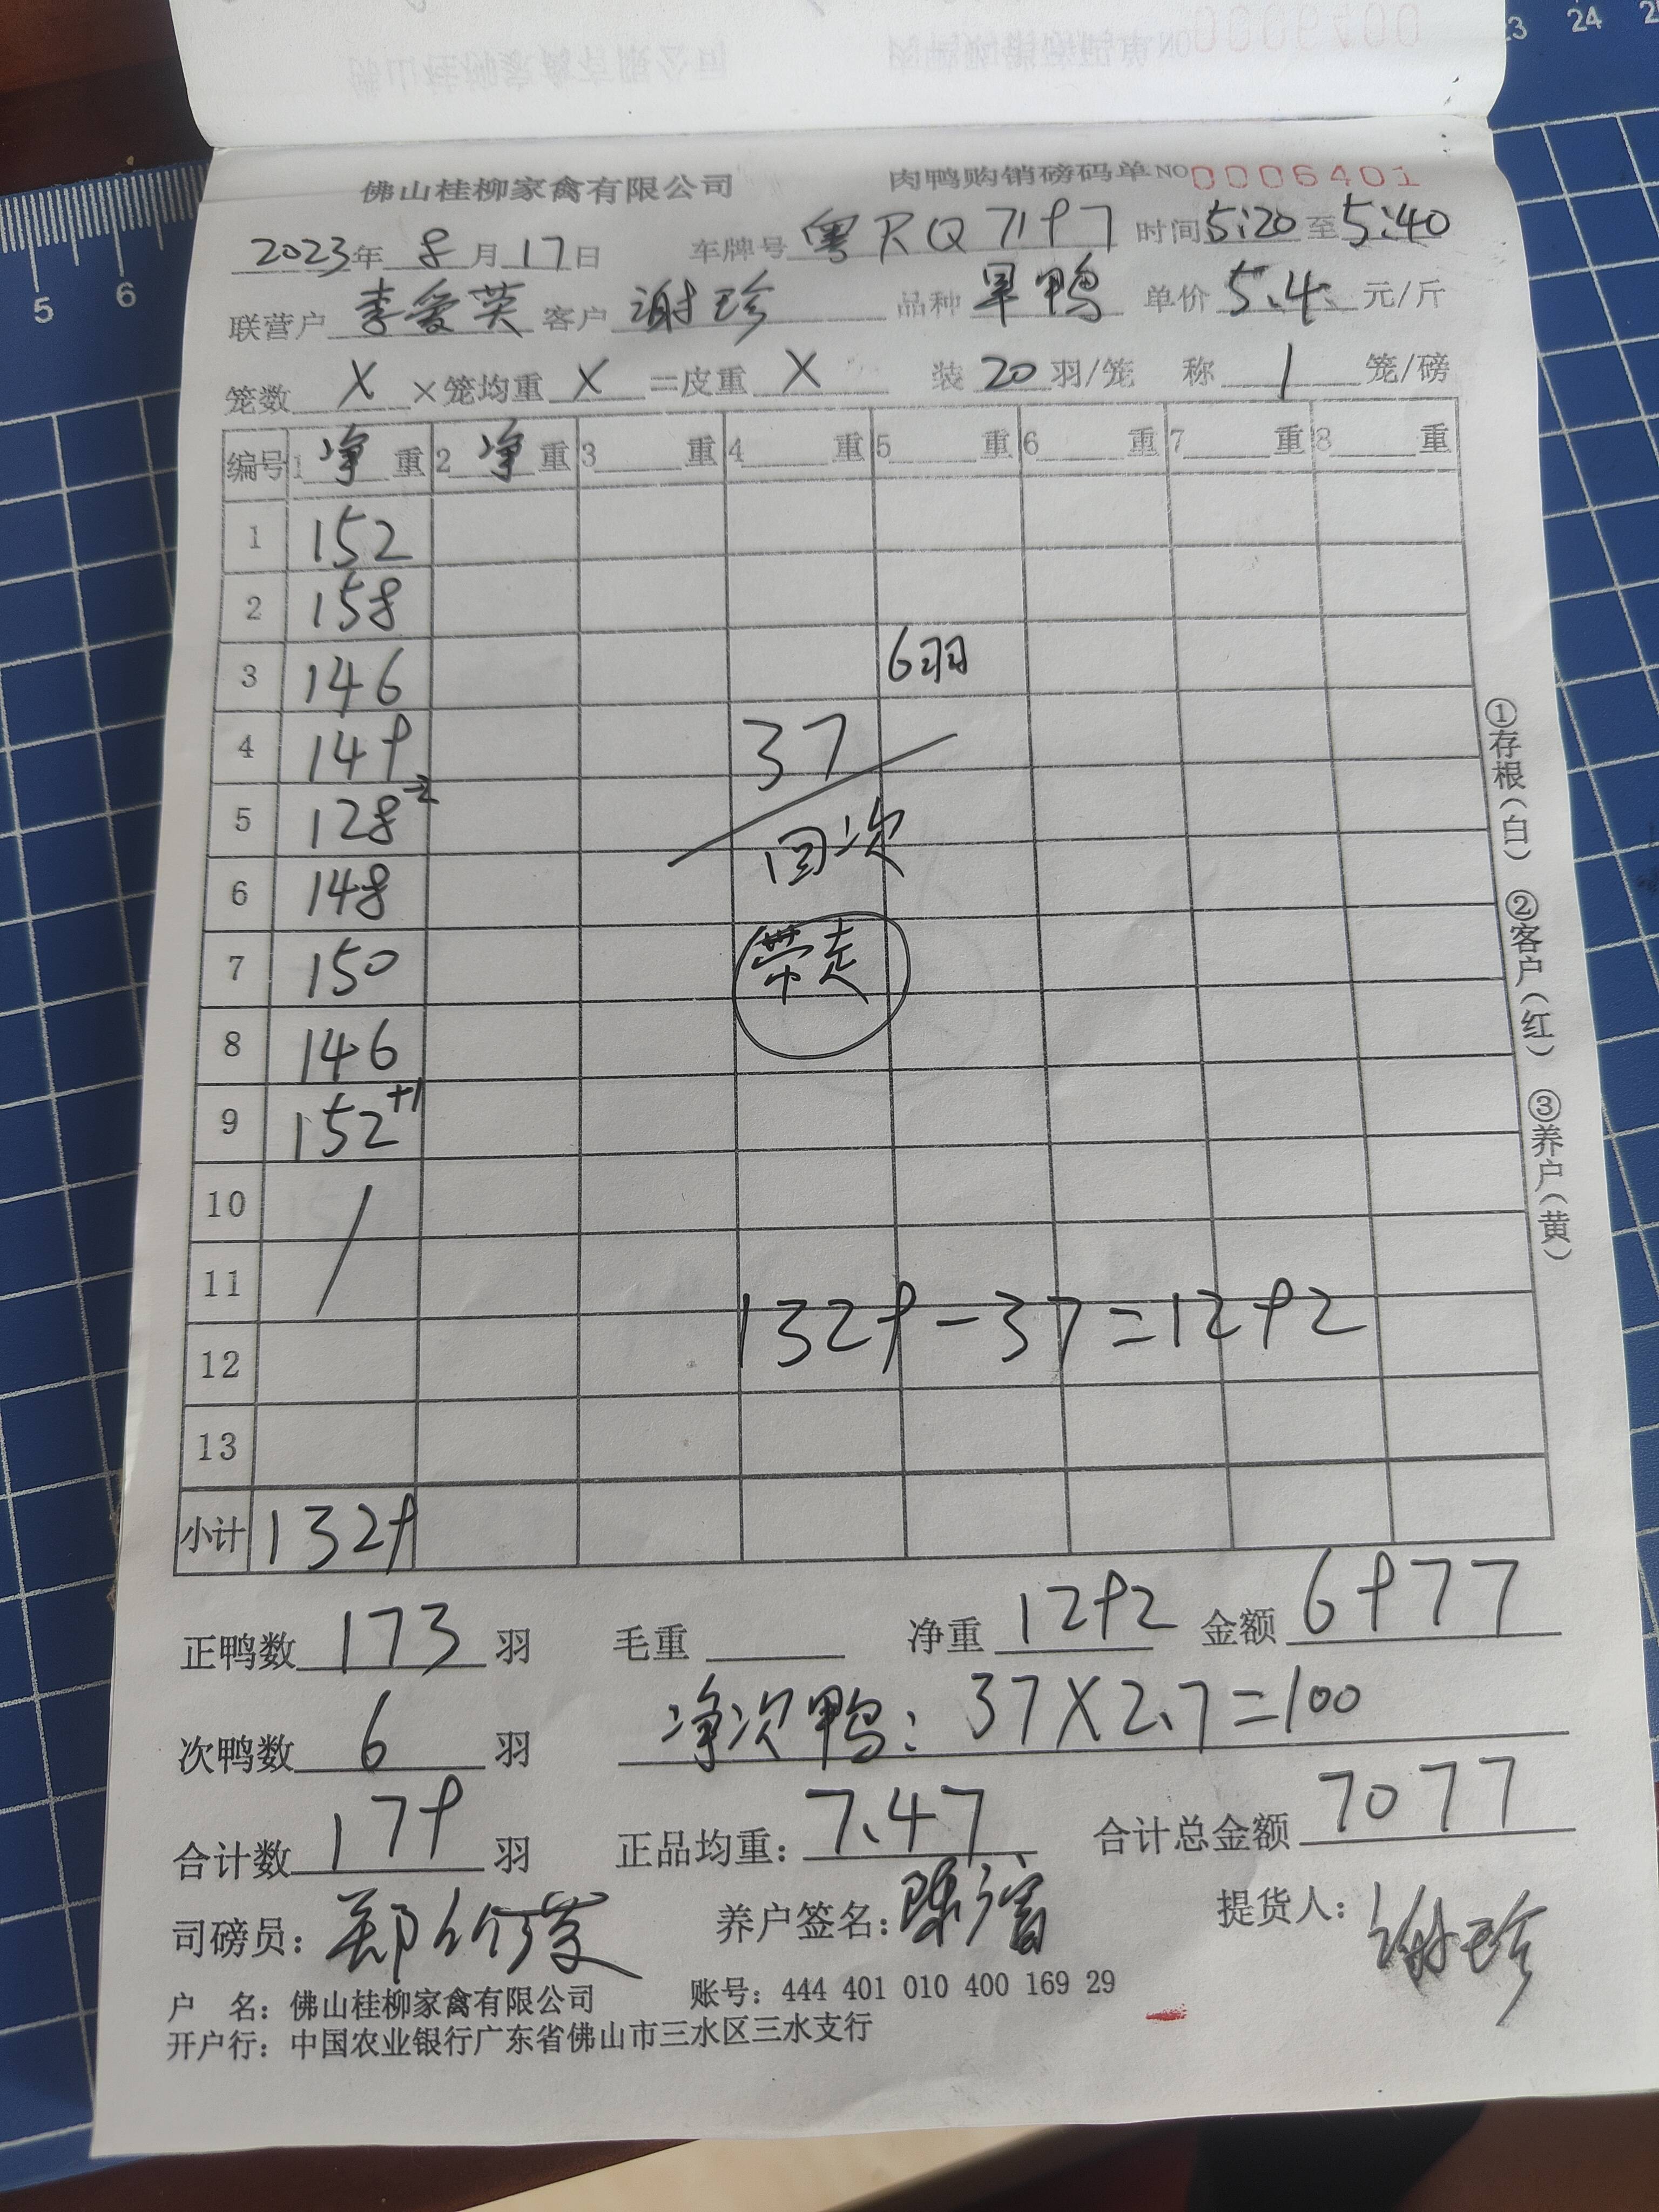 佛山桂柳家禽有限公司 肉鸭购销磅码单 NO 0006401
2023年 8月17日 车牌号 粤RQ7197 时间5:20至5:40
联营户 李爱英 客户 谢珍 品种 旱鸭 单价 5.4 元/斤
笼数 X ×笼均重 X =皮重 X 装 20 羽/笼 称 1 笼/磅
编号 1 净 重 2 净 重 3 重 4 重 5 重 6 重 7 重 8 重
1 152
2 158
3 146 6羽
4 149 37
5 128 -2 回次
6 148
7 150 带走
8 146
9 152 +1
10
11
12 1329-37=1292
13
小计 1329
①存根(白) ②客户(红) ③养户(黄)
正鸭数 173 羽 毛重 净重 1292 金额 6977
次鸭数 6 羽 净次鸭: 37X2.7=100
合计数 179 羽 正品均重: 7.47 合计总金额 7077
司磅员: 养户签名: 提货人: 谢珍
户 名: 佛山桂柳家禽有限公司 账号: 444 401 010 400 169 29
开户行: 中国农业银行广东省佛山市三水区三水支行
5 6
23 24